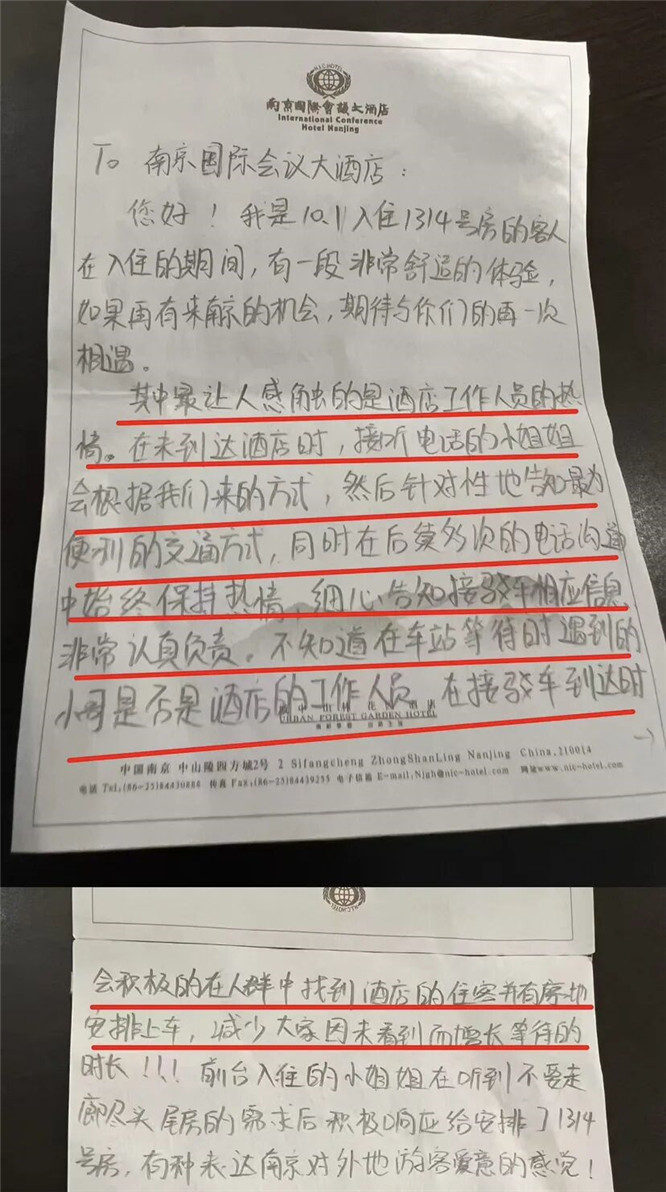 N.I.C HOTEL
南京國際會議大酒店
International Conference
Hotel Nanjing
To 南京国际会议大酒店:
您好！我是10.1入住1314号房的客人
在入住的期间，有一段非常舒适的体验，
如果再有来南京的机会，期待与你们的再一次
相遇。
其中最让人感触的是酒店工作人员的热
情。在未到达酒店时，接听电话的小姐姐
会根据我们来的方式，然后针对性地告知最为
便利的交通方式，同时在后续多次的电话沟通
中始终保持热情，细心告知接驳车相应信息
非常认真负责。不知道在车站等待时遇到的
小哥是否是酒店的工作人员，在接驳车到达时
URBAN FOREST GARDEN HOTEL
→
中国南京 中山陵四方城2号 2 Sifangcheng ZhongShanLing Nanjing China.210014
电话 Tel,(86-25)84430888 传真 Fax,(86-25)84439255 电子信箱 E-mail,Njgh@nic-hotel.com 网址www.nic-hotel.com
会积极的在人群中找到酒店的住客并有序地
安排上车，减少大家因未看到而增长等待的
时长！！！前台入住的小姐姐在听到不要走
廊尽头尾房的需求后积极响应给安排了1314
号房，有种表达南京对外地游客爱意的感觉！